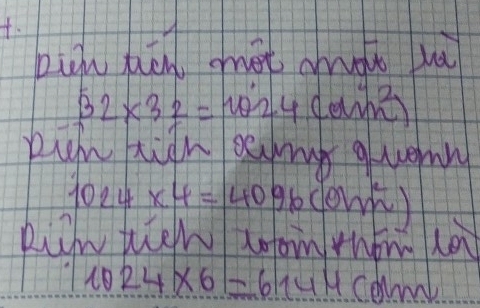 Diện tích một mặt là
32 × 32 = 1024 (dm²)
Diện tích xung quanh
1024 × 4 = 4096 (dm²)
Diện tích toàn phần là
1024 × 6 = 6144 (dm